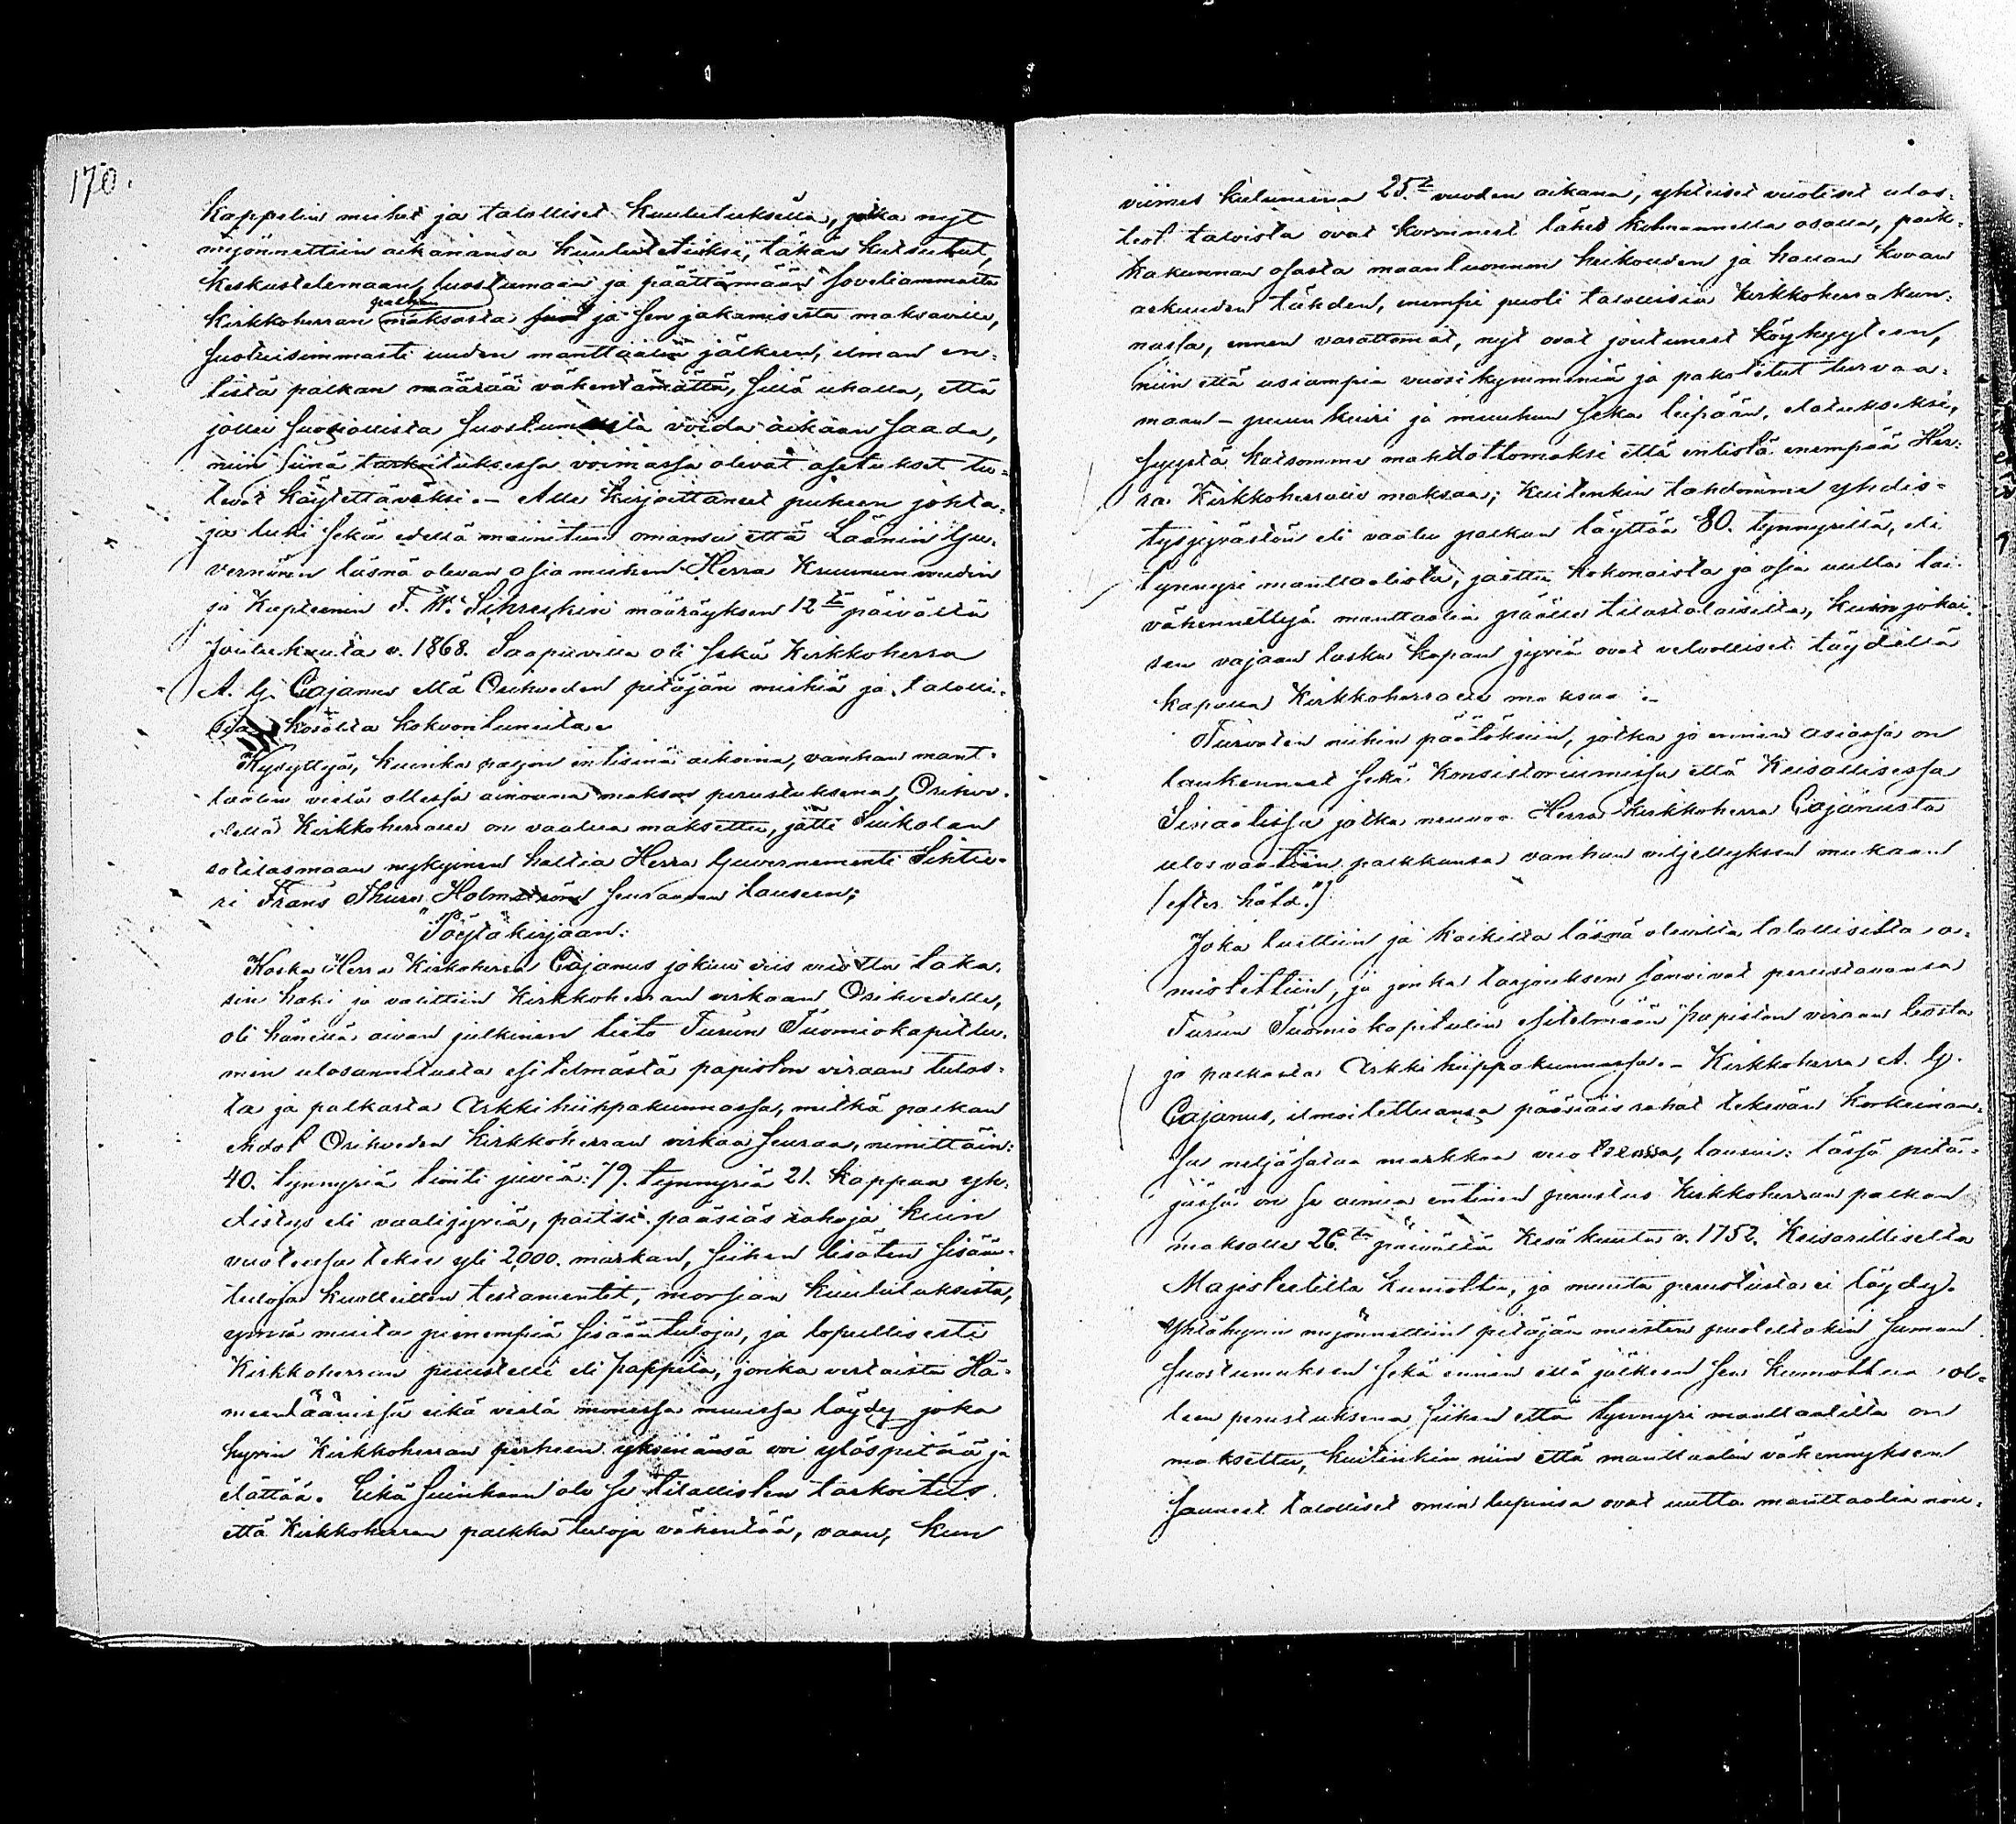 170.
kappelin miehet ja talolliset kuulutuksella, jotka nyt
myönnettiin aikanansa kuulutetuiksi, tähän kutsutut,
keskustelemaan, suostumaan ja päättämään soveliammasta
palkan
kirkkoherran maksosta ja sen jakamisesta maksaville,
suotuisimmasti uuden manttaalin jälkeen, ilman en-
tistä palkan määrää vähentämättä, sillä uhalla, että
jollei suosiollista suostumusta voida aikaan saada,
niin siinä tarkoituksessa voimassa olevat asetukset tu-
levat käytettäväksi. – Alle kirjoittanut puheen johta-
ja luki sekä edellä mainitun omansa että Läänin Gu-
vernörin läsnä olevan asiamiehen Herra Kruununvoudin
ja Kapteenin F. W. määräyksen 12ta päivältä
Joulukuuta v. 1868. Saapuvilla oli sekä Kirkkoherra
A. G. Cajanus että Orihveden pitäjän miehiä ja talolli-
sia koolta kokoontuneita.
Kysyttyä, kuinka paljon entisinä aikoina, vanhan mant-
taalin vielä ollessa ainoana makson perustuksena, Orihve-
dellä Kirkkoherralle on vaalia maksettu, jätti Siukolan
sotilasmaan nykyinen haltia Herra Guvernementi Sihtee-
ri Frans Thure Holmström seuraavan lauseen;
"Pöytäkirjaan:
Koska Herra Kirkkoherra Cajanus jokuu viis vuotta taka-
sin haki ja valittiin Kirkkoherran virkaan Orihvedelle,
oli hänellä aivan julkinen tieto Turun Tuomiokapitlu-
min ulosannetusta esitelmästä papiston viraan tulos-
ta ja palkasta Arkkihiippakunnassa, mitkä palkan
ehdot Orihveden Kirkkoherran virkaa seuraa, nimittäin:
40. tynnyriä tiinti jyviä: 79. tynnyriä 21. kappaa yh-
distys eli vaalijyviä, paitsi pääsiäs rahoja kuin
vuoteessa tekee yli 2,000. markan, siihen lisäten sisään-
tuloja kuolleitten testamentit, morsian kuulutuksista,
ynnä muita pienempiä sisääntuloja, ja lopullisesti
Kirkkoherran puustelli eli pappila, jonka vertaista Hä-
meenläänissä eikä vielä monessa muussa löydy joka
hyvin Kirkkoherran perheen yksinänsä voi ylöspitää ja
elättää. Eikä suinkaan ole se tilallisten tarkoitus
että Kirkkoherran palkka tuloja vähentää, vaan, kun
viimes kuluneena 25.ta vuoden aikana, yhteiset vuotiset ulos-
teot taloista ovat korvinnet lähes kolmannella osalla, paik-
kakunnan osasta maanluonnon heikouden ja hallan kovan
arkuuden tähden, enempi puoli talollisia kirkkoherrakun-
nassa, ennen varattomat, nyt ovat joutuneet köyhyyteen,
niin että usiampia vuosikymmeniä ja pakotetut turvaa-
maan – puun kuori ja muuhun seka leipään, elatukseksi,
syystä katsomme mahdottomaksi että entistä enempää Her-
ra Kirkkoherralle maksaa; kuitenkin tahdomme yhdis-
tysjyvästön eli vaalin palkan täyttää 80. tynnyrillä, eli
tynnyri manttaalista, jaettu kokonaista ja osia uutta tai
vähennettyjä manttaalia päälle tilastalaisilta, kuin jokai-
sen vajaan lasku kapan jyviä ovat velvolliset täydellä
kapalla Kirkkoherralle maksaa.–
Turvaten niihin päätöksiin, jotka jo ennen asiassa on
lankennet sekä Konsistoriumissa että Keisallisessa
Sinaatissa jotka neuvoo Herra Kirkkoherra Cajanusta
ulosvaatiin palkkansa vanhan viljellyksen mukaan
(efter häfd.")
Joka luettiin ja kaikilta läsnä olevilta talollisilta o-
mistettiin, ja jonka tarjouksen sanoivat perustavansa
Turun Tuomiokapitulin esitelmään papiston viraan teosta
ja palkasta Arkkihiippakunnassa. – Kirkkoherra A. G.
Cajanus, ilmoitettuansa pääsiäis rahat tekevän korkeinan-
sa neljäsataa markkaa vuoteessa, lausui: tässä pitä-
jässä on se ainoa entinen perustus Kirkkoherran palkan
maksolle 26.ta päivältä Kesäkuuta v. 1752. Keisarilliselta
Majisteetilta kumottu, ja muuta perustusta ei löydy.
Yhtähyvin myönnettiin pitäjän miesten puoleltakin saman
suostumuksen sekä ennen että jälkeen sen kumottua ol-
leen perustuksena siihen että tynnyri manttaalilta on
maksettu, kuitenkin niin että manttaalin vähennyksen
saaneet talolliset omin lupinsa ovat uutta manttaalia nou-